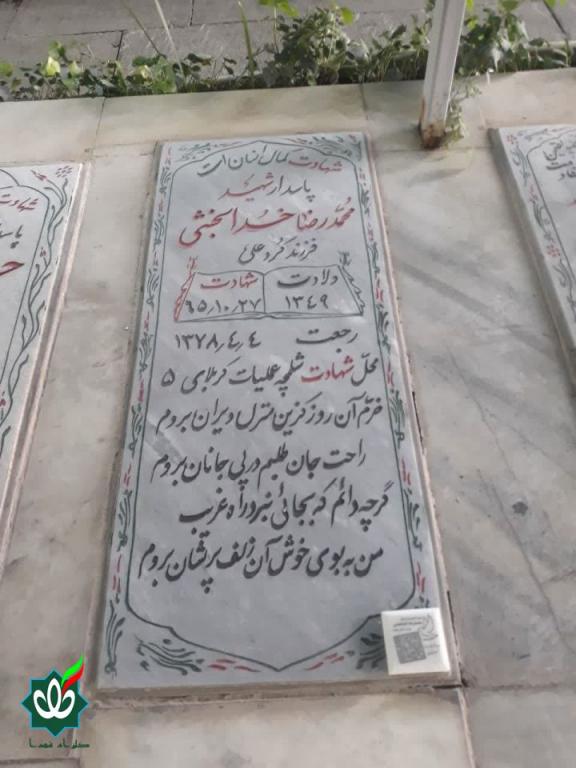 شهادت کمال انسان است
پاسدار شهید
محمدرضا خدابخشی
فرزند کرد علی
ولادت شهادت
۱۳۴۹ ۶۵٫۱۰٫۲۷
رجعت ۱۳۷۸٫۴٫۴
محل شهادت شلمچه عملیات کربلای ۵
خرم آن روز کزین منزل ویران بروم
راحت جان طلبم در پی جانان بروم
گرچه دانم که بجائی نبرد راه غریب
من به بوی خوش آن زلف پریشان بروم
گلزار شهدا